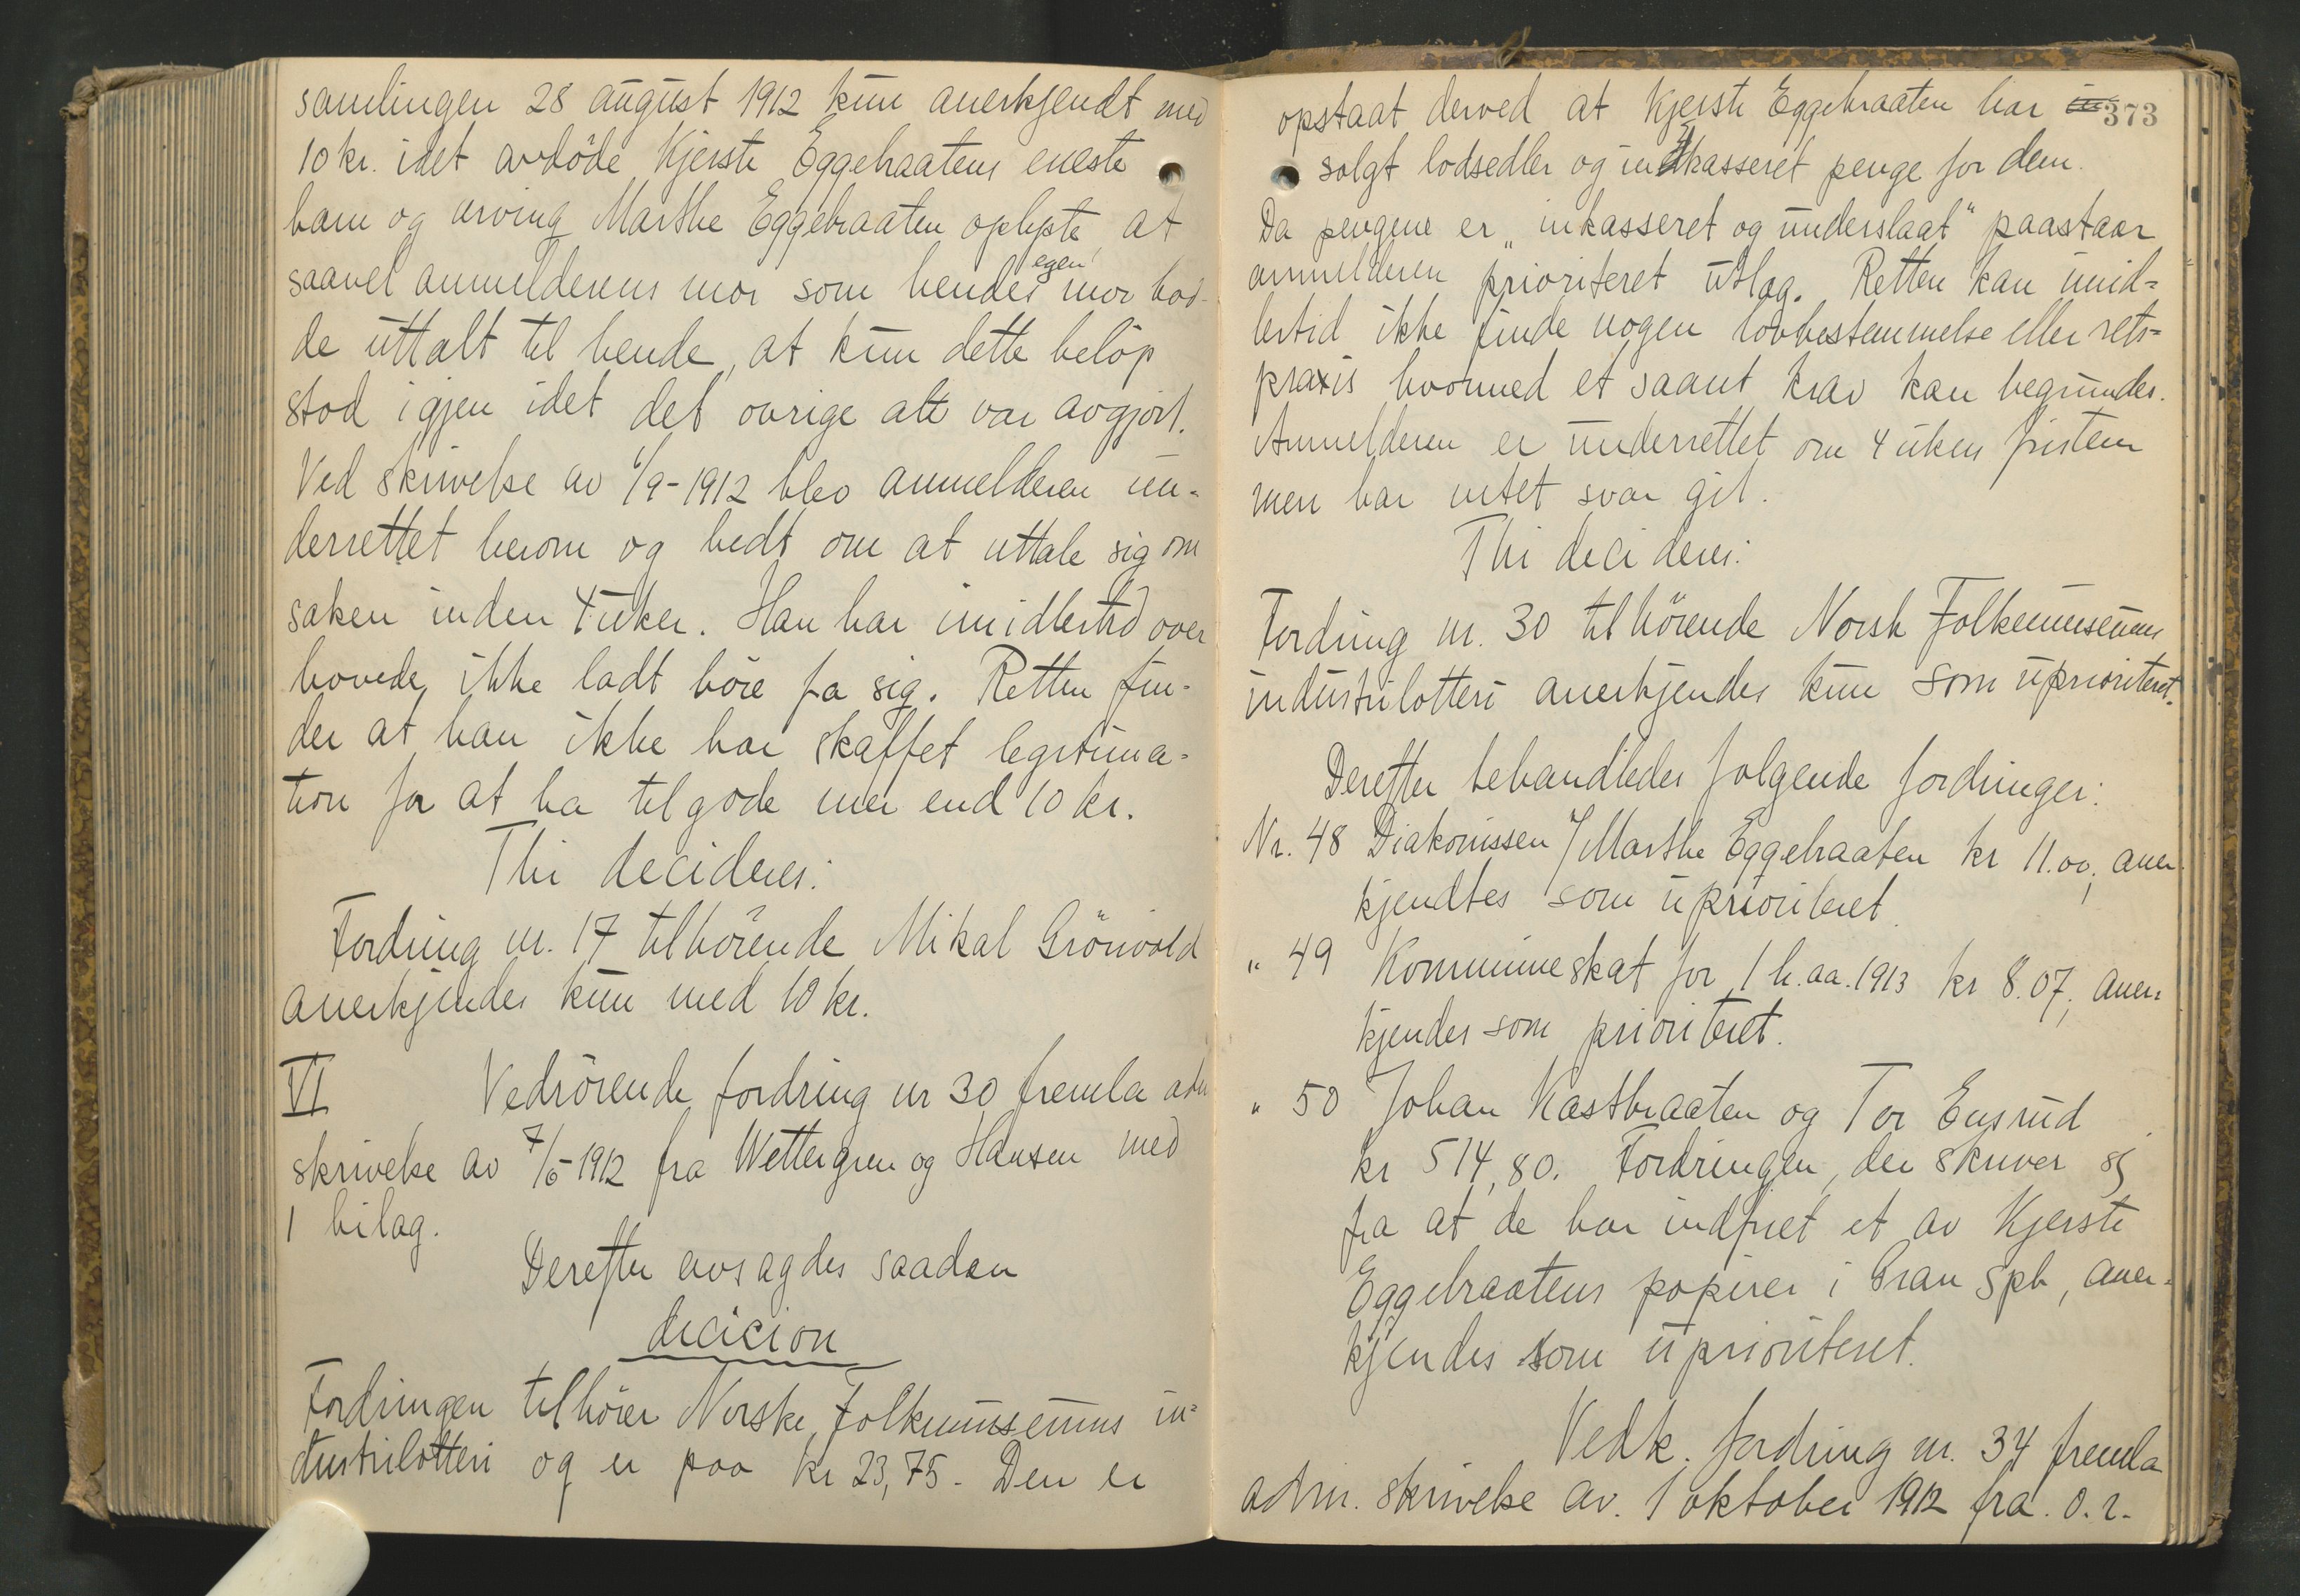 samlingen 28 august 1912 kun anerkjendt med
10 kr. idet avdöde Kjersti Eggebraatens eneste
barn og arving Marthe Eggebraaten oplyste, at
saavel anmelderens mor som hendes egen mor had-
de uttalt til hende, at kun dette belöp
stod igjen idet det ovrige alt var avgjort.
Ved skrivelse av 6/9-1912 blev anmelderen un-
derrettet herom og bedt om at uttale sig om
saken inden 4 uker. Han har imidlertid over
hovedet ikke ladt höre fra sig. Retten fin-
der at han ikke har skaffet legitima-
tion for at ha tilgode mer end 10 kr.
Thi decideres:
Fordring nr. 17 tilhörende Mikal Grönvold
anerkjendes kun med 10 kr.
VI Vedrörende fordring nr 30 fremla adm
skrivelse av 7/6-1912 fra Wettergren og Hansen med
1 bilag.
Derefter avsagdes saadan
decision
Fordringen tilhörer Norske Folkemuseums in-
dustrilotteri og er paa kr 23,75 - Den er
373
opstaat derved at Kjersti Eggebraaten har in
solgt lodsedler og indkasseret penge for dem.
Da pengene er "inkasseret og underslaat" paastaar
anmelderen prioriteret utlag. Retten kan imid-
lertid ikke finde nogen lovbestemmelse eller rets-
praxis hvormed et saant krav kan begrundes.
Anmelderen er underrettet om 4 ukers fristen
men har intet svar git.
Thi decideres:
Fordring nr. 30 tilhörende Norsk Folkemuseums
industrilotteri anerkjendes kun som uprioriteret.
Derefter behandledes folgende fordringer:
Nr. 48 Diakonissen Marthe Eggebraaten kr 11.00, aner-
kjendtes som uprioriteret.
" 49 Kommuneskat for 1 h.aa. 1913 kr 8.07, aner-
kjendes som prioriteret.
" 50 Johan Kastbraaten og Tor Ensrud
kr 514,80. Fordringen, der skriver sig
fra at de har indfriet et av Kjersti
Eggebraatens papirer i Gran Spb, aner-
kjendes som uprioriteret.
Vedk. fordring nr. 34 fremla
adm. skrivelse av. 1 oktober 1912 fra. o.r.